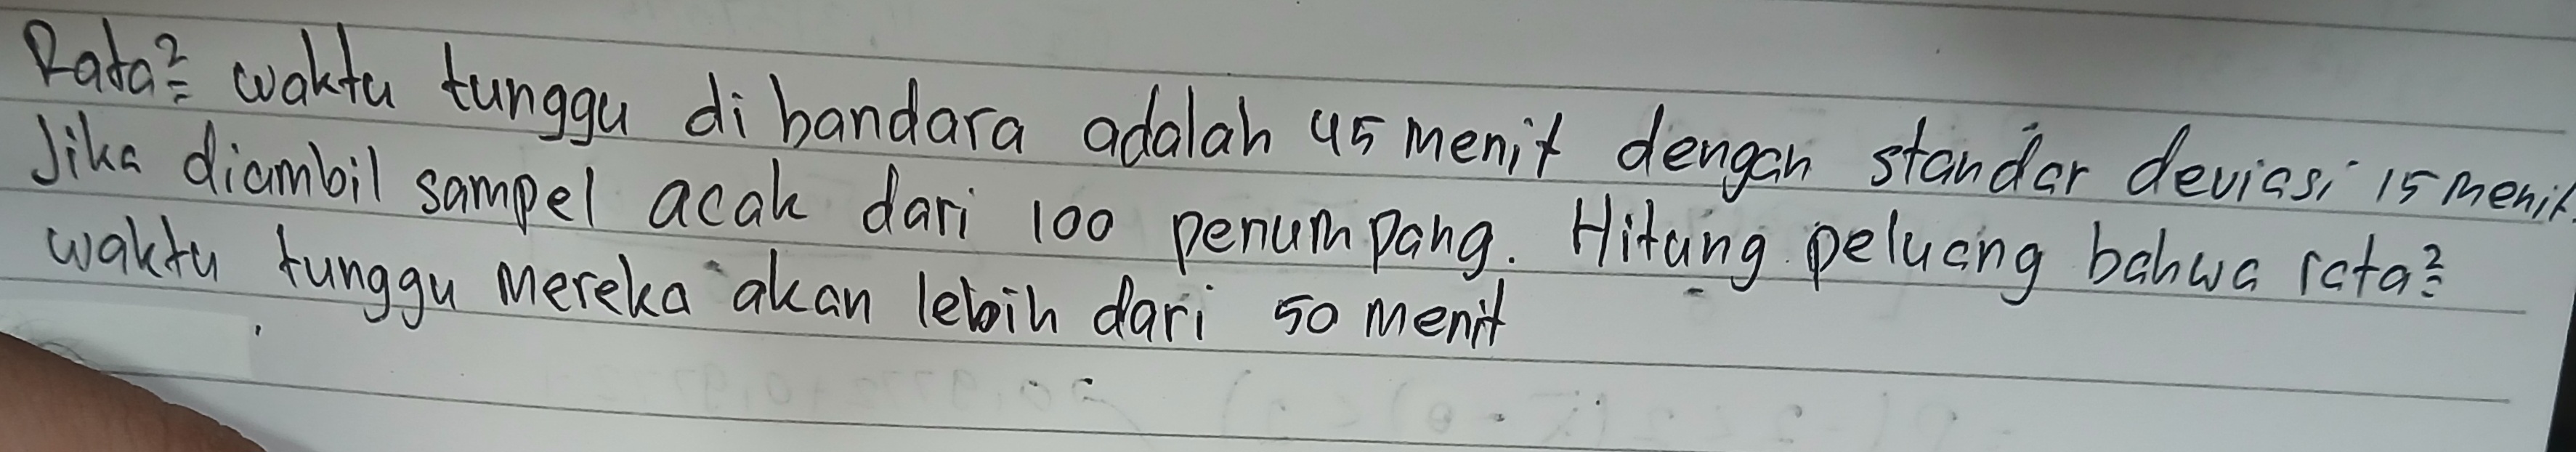 Rata² waktu tunggu di bandara adalah 45 menit dengan standar deviasi 15 menit.
Jika diambil sampel acak dari 100 penumpang. Hitung peluang bahwa rata²
waktu tunggu mereka akan lebih dari 50 menit